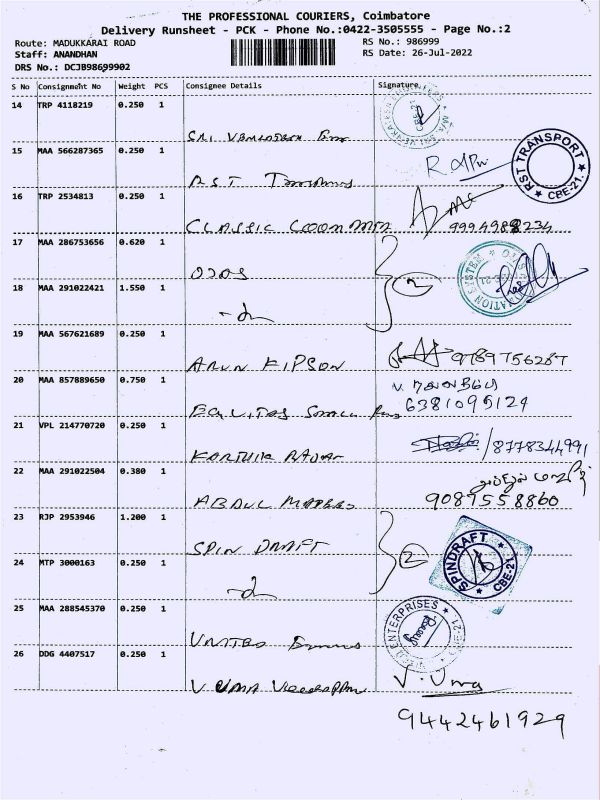 THE PROFESSIONAL COURIERS, Coimbatore
Delivery Runsheet - PCK - Phone No.:0422-3505555 - Page No.:2
Route: MADUKKARAI ROAD
RS No.: 986999
Staff: ANANDHAN
RS Date: 26-Jul-2022
DRS No.: DCJB98699902
S No Consignment No Weight PCS Consignee Details Signature
14 TRP 4118219 0.250 1
SRI
15 MAA 566287365 0.250 1
R.S.T
RST TRANSPORT
CBE-21.
16 TRP 2534813 0.250 1
CLASSIC
17 MAA 286753656 0.620 1
OJAS
2
18 MAA 291022421 1.550 1
19 MAA 567621689 0.250 1
ARUN KIPSON 9789756287
20 MAA 857889650 0.750 1
EQUITAS
6381095124
21 VPL 214770720 0.250 1
KARTHIK 8778344991
22 MAA 291022504 0.380 1
ABDUL 9087558860
23 RJP 2953946 1.200 1
SPIN DRAFT
2
SPINDRAFT
CBE-21
24 MTP 3000163 0.250 1
25 MAA 288545370 0.250 1
UNITED
ENTERPRISES
26 DDG 4407517 0.250 1
V UMA V. Uma
9442461929